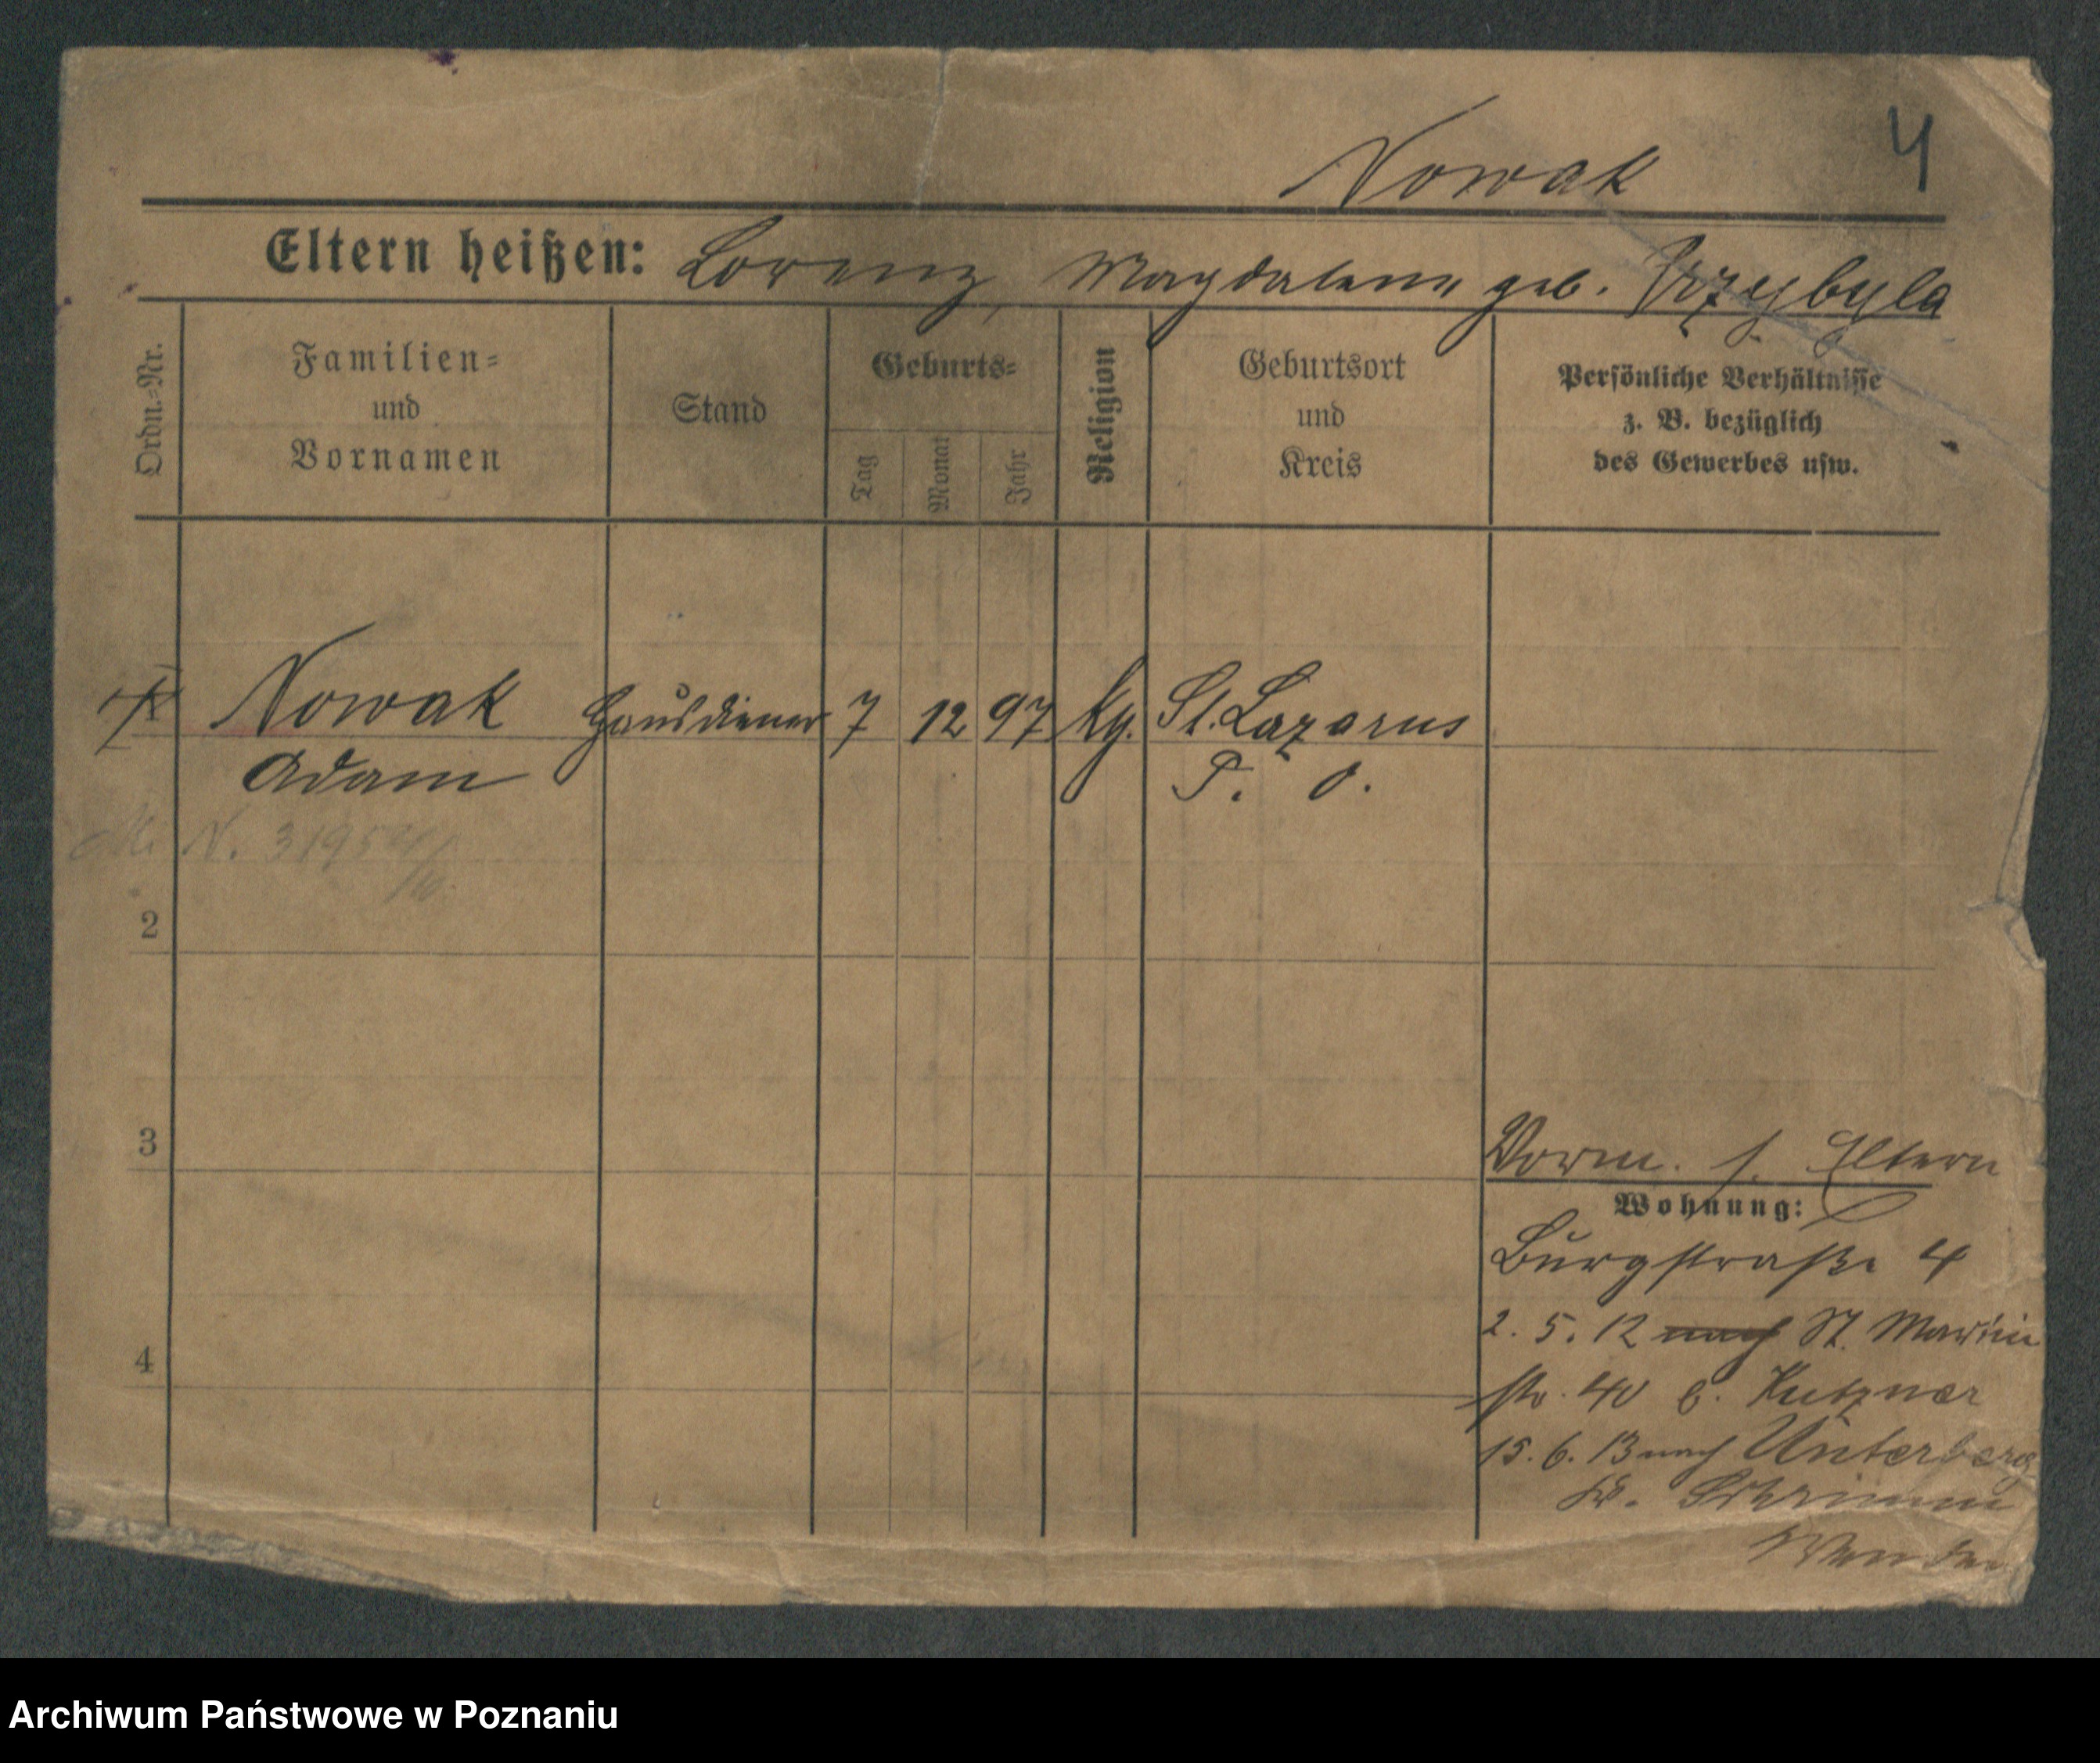 Nowak 4
Eltern heißen: Lorenz, Magdalena geb. Przybyla
Ordn.-Nr.
Familien-
und
Vornamen
Stand
Geburts-
Tag
Monat
Jahr
Religion
Geburtsort
und
Kreis
Persönliche Verhältnisse
z. B. bezüglich
des Gewerbes usw.
1 Nowak Hausdiener 7 12 97 kg. St. Lazarus
Adam P. O.
N. 31954/
2
3
Vorm. s. Eltern
Wohnung:
Burgstraße 4
2. 5. 12 nach St. Martin
4
str. 40 b. Kutzner
15. 6. 13 nach Unterberg
Kr. Schrimm
Archiwum Państwowe w Poznaniu